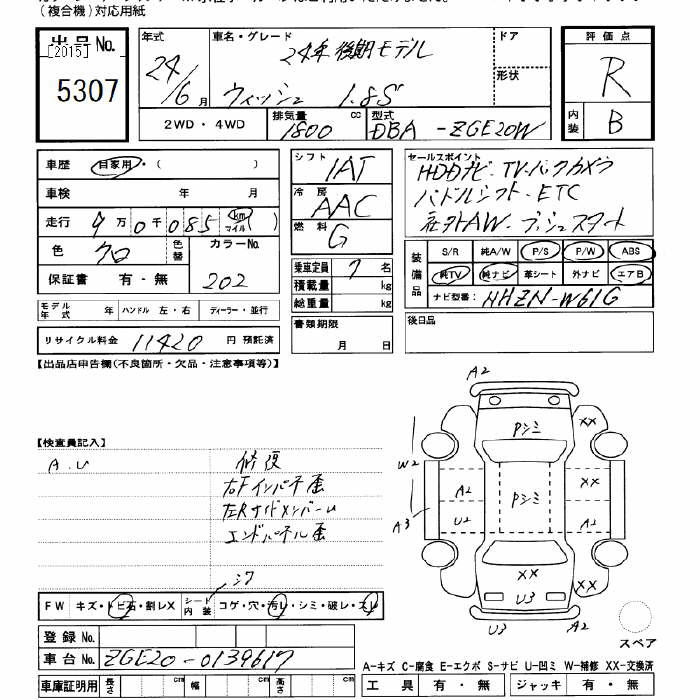 (複合機)対応用紙
出品No.
[2015]
5307
年式
24/6月
車名・グレード
24年後期モデル
ウィッシュ 1.8S
ドア
形状
評価点
R
内装
B
2WD・4WD
排気量
1800
cc
型式
DBA-ZGE20W
車歴 自家用・( )
車検 年 月
走行 9万0千085 km マイル ( )
色 クロ
色替
カラーNo.
202
保証書 有・無
モデル年式 年
ハンドル 左・右
ディーラー・並行
リサイクル料金 11420 円 預託済
シフト
IAT
冷房
AAC
燃料
G
乗車定員 7 名
積載量 kg
総重量 kg
書類期限
月 日
セールスポイント
HDDナビ・TV・バックカメラ
パドルシフト・ETC
社外AW・プッシュスタート
装備品
S/R 純A/W P/S P/W ABS
純TV 純ナビ 革シート 外ナビ エアB
ナビ型番: NHZN-W61G
後日品
【出品店申告欄(不良箇所・欠品・注意事項等)】
【検査員記入】
A.U
修復
右Fインパネ歪
左Rサイドメンバーム
エンドパネル歪
シワ
FW キズ・トビ石・割レX
シート内装
コゲ・穴・汚レ・シミ・破レ・スレ
登録No.
車台No. ZGE20-0139617
車庫証明用
長さ cm
幅 cm
高さ cm
A2
Pシミ
XX
W2
A2
Pシミ
XX
A3
U2
A2
XX
XX
U3
U3
A2
スペア
A-キズ C-腐食 E-エクボ S-サビ U-凹ミ W-補修 XX-交換済
工具 有・無
ジャッキ 有・無